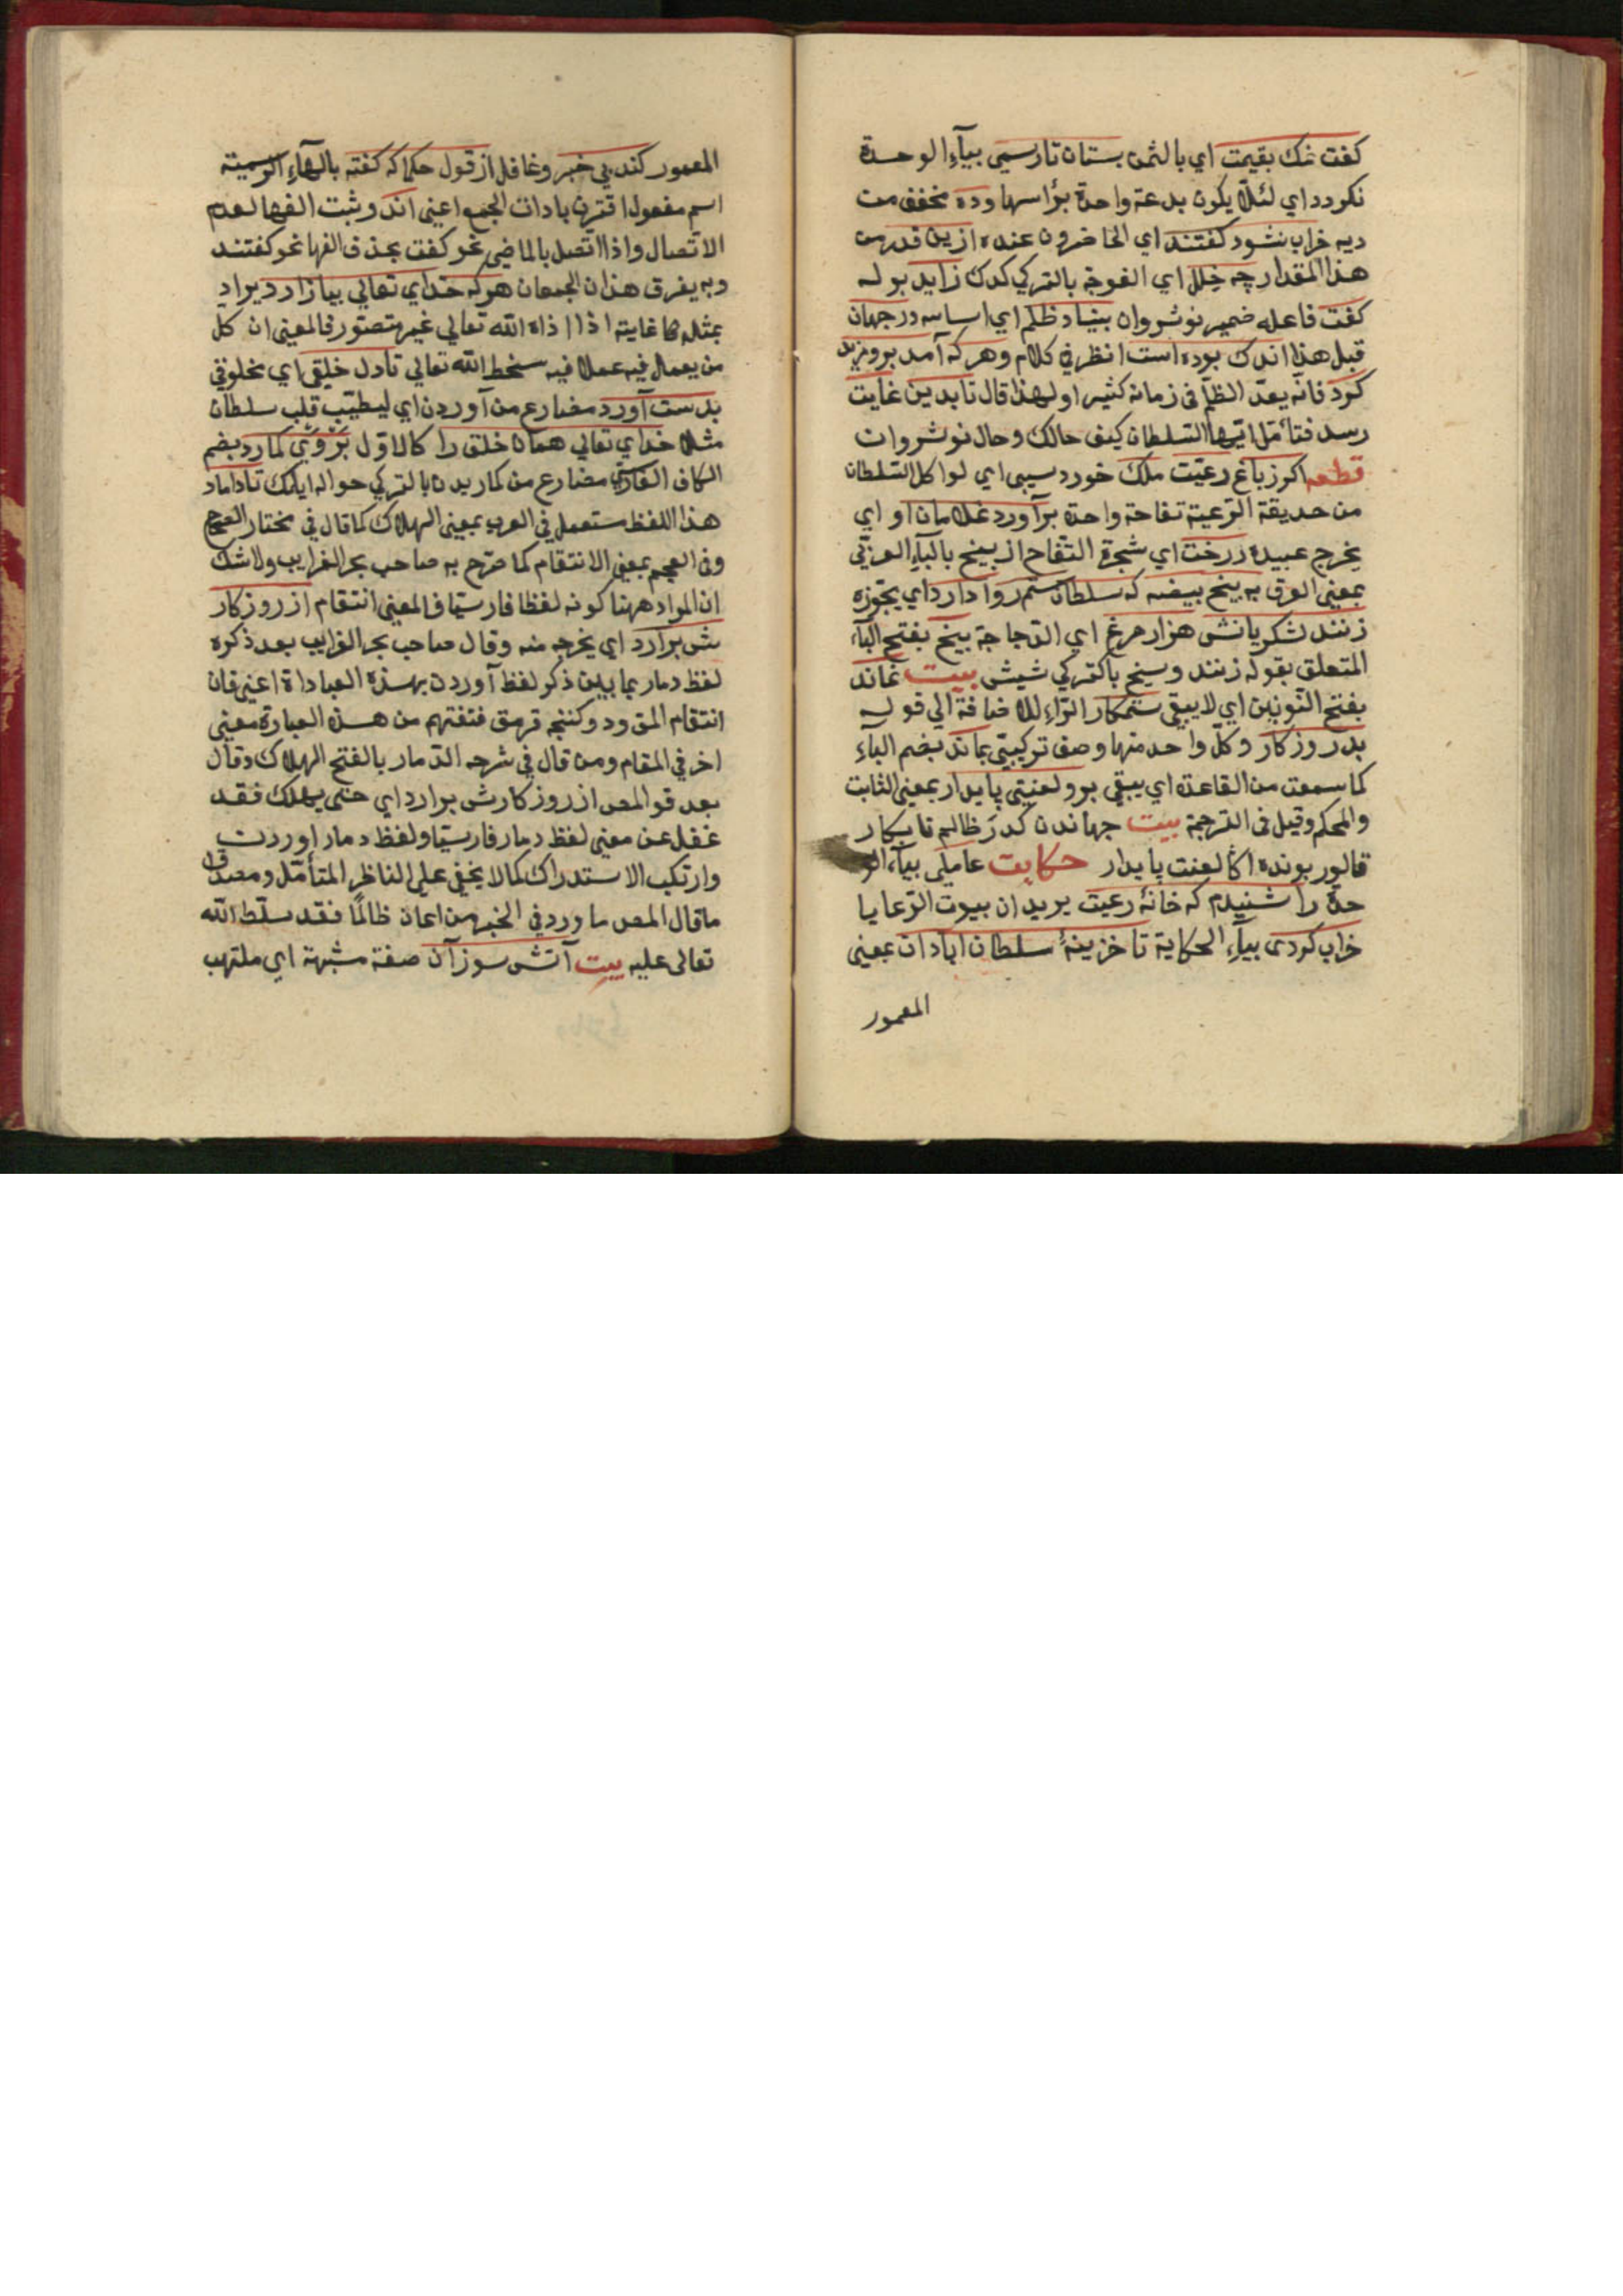 كفت نمك بقيمت اي بالثمن بستان تا رسمي بيآء الوحدة
نكردد اي لئلا يكون بدعة واحدة برأسها وده مخفف من
ديه خراب نشود كفتند اي الحاضرون عنده ازين قدر من
هذا المقدار چه خلل اي الفرجة بالتركي كدك زايد بوله
كفت فاعله ضمير نوشروان بنياد ظلم اي اساسه در جهان
قبل هذا اندك بوده است انظر في كلام وهركه آمد برو مزيد
كرد فانه يعد الظلم في زمانه كثيرا ولهذا قال تا بدين غايت
رسد فتأمل ايها السلطان كيف حالك وحال نوشروان
قطعه اكر ز باغ رعيت ملك خورد سيبى اي لو اكل السلطان
من حديقة الرعية تفاحة واحدة برآورد غلامان او اي
يخرج عبيده درخت اي شجرة التفاح از بيخ بالبآء العربي
بمعنى العرق به پنج بيضه كه سلطان ستم روا دارد اي يجوزه
زنند لشكريانش هزار مرغ اي الدجاجة بسيخ بفتح البآء
المتعلق بقوله زنند وسيخ بالتركي شيش بيت نماند
بفتح النونين اي لا يبقى ستمكار الرآء للاضافة الى قوله
بد روزكار وكل واحد منها وصف تركيبي بماند بضم البآء
كما سمعت من القاعدة اي يبقى برو لعنتى پايدار بمعنى الثابت
والمحكم وقيل في الترجمة بيت جهاندن كدر ظالم نابكار
قالور بونده اكا لعنت پايدار حكايت عاملى بيآء الو
حدة را شنيدم كه خانۀ رعيت يريد ان بيوت الرعايا
خراب كردى بيآء الحكاية تا خزينۀ سلطان ابادان بمعنى
المعمور
المعمور كند بي خبر وغافل از قول حكما كه كفته بالهآء الرسمية
اسم مفعول اقترن بادات الجمع اعنى اند وثبت الفها لعدم
الاتصال واذا اتصل بالماضي نحو كفت يحذف الفها نحو كفتند
وبه يفرق هذان الجمعان هركه خداي تعالى بيازارد يراد
بمثله ها غايته اذ ا اذاه الله تعالى غير متصور فالمعنى ان كل
من يعمل فيه عملا فيه سخط الله تعالى تا دل خلقى اي مخلوقي
بدست آورد مضارع من آوردن اي ليطيب قلب سلطان
مثلا خداي تعالى همان خلق را كالاول بر وي كمارد بضم
الكاف الفارسي مضارع من كماريدن بالتركي حواله ايلمك تا دمار
هذا اللفظ مستعمل في العرب بمعنى الهلاك كما قال في مختار الصحاح
وفي العجم بمعنى الانتقام كما صرح به صاحب بحر الغرايب ولا شك
ان المراد ههنا كونه لفظا فارسيا فالمعنى انتقام از روزكار
ش برآرد اي يخرجه منه وقال صاحب بحر الغرايب بعد ذكره
لفظ دمار بما يبين ذكر لفظ آوردن بهذه العبادة اعنى قان
انتقام المق ود وكننجه قرمق فتفهم من هذه العبارة معنى
اخر في المقام ومن قال في شرحه الدمار بالفتح الهلاك وقال
بعد قو المص از روزكارش برارد اي حتى يهلك فقد
غفل عن معنى لفظ دمار فارسيا ولفظ دمار اوردن
وارتكب الاستدراك كما لا يخفى على الناظر المتأمل ومصداق
ما قال المص ما ورد في الخبر من اعان ظالمًا فقد سلط الله
تعالى عليه بيت آتش سوزان صفة مشبهة اي ملتهب